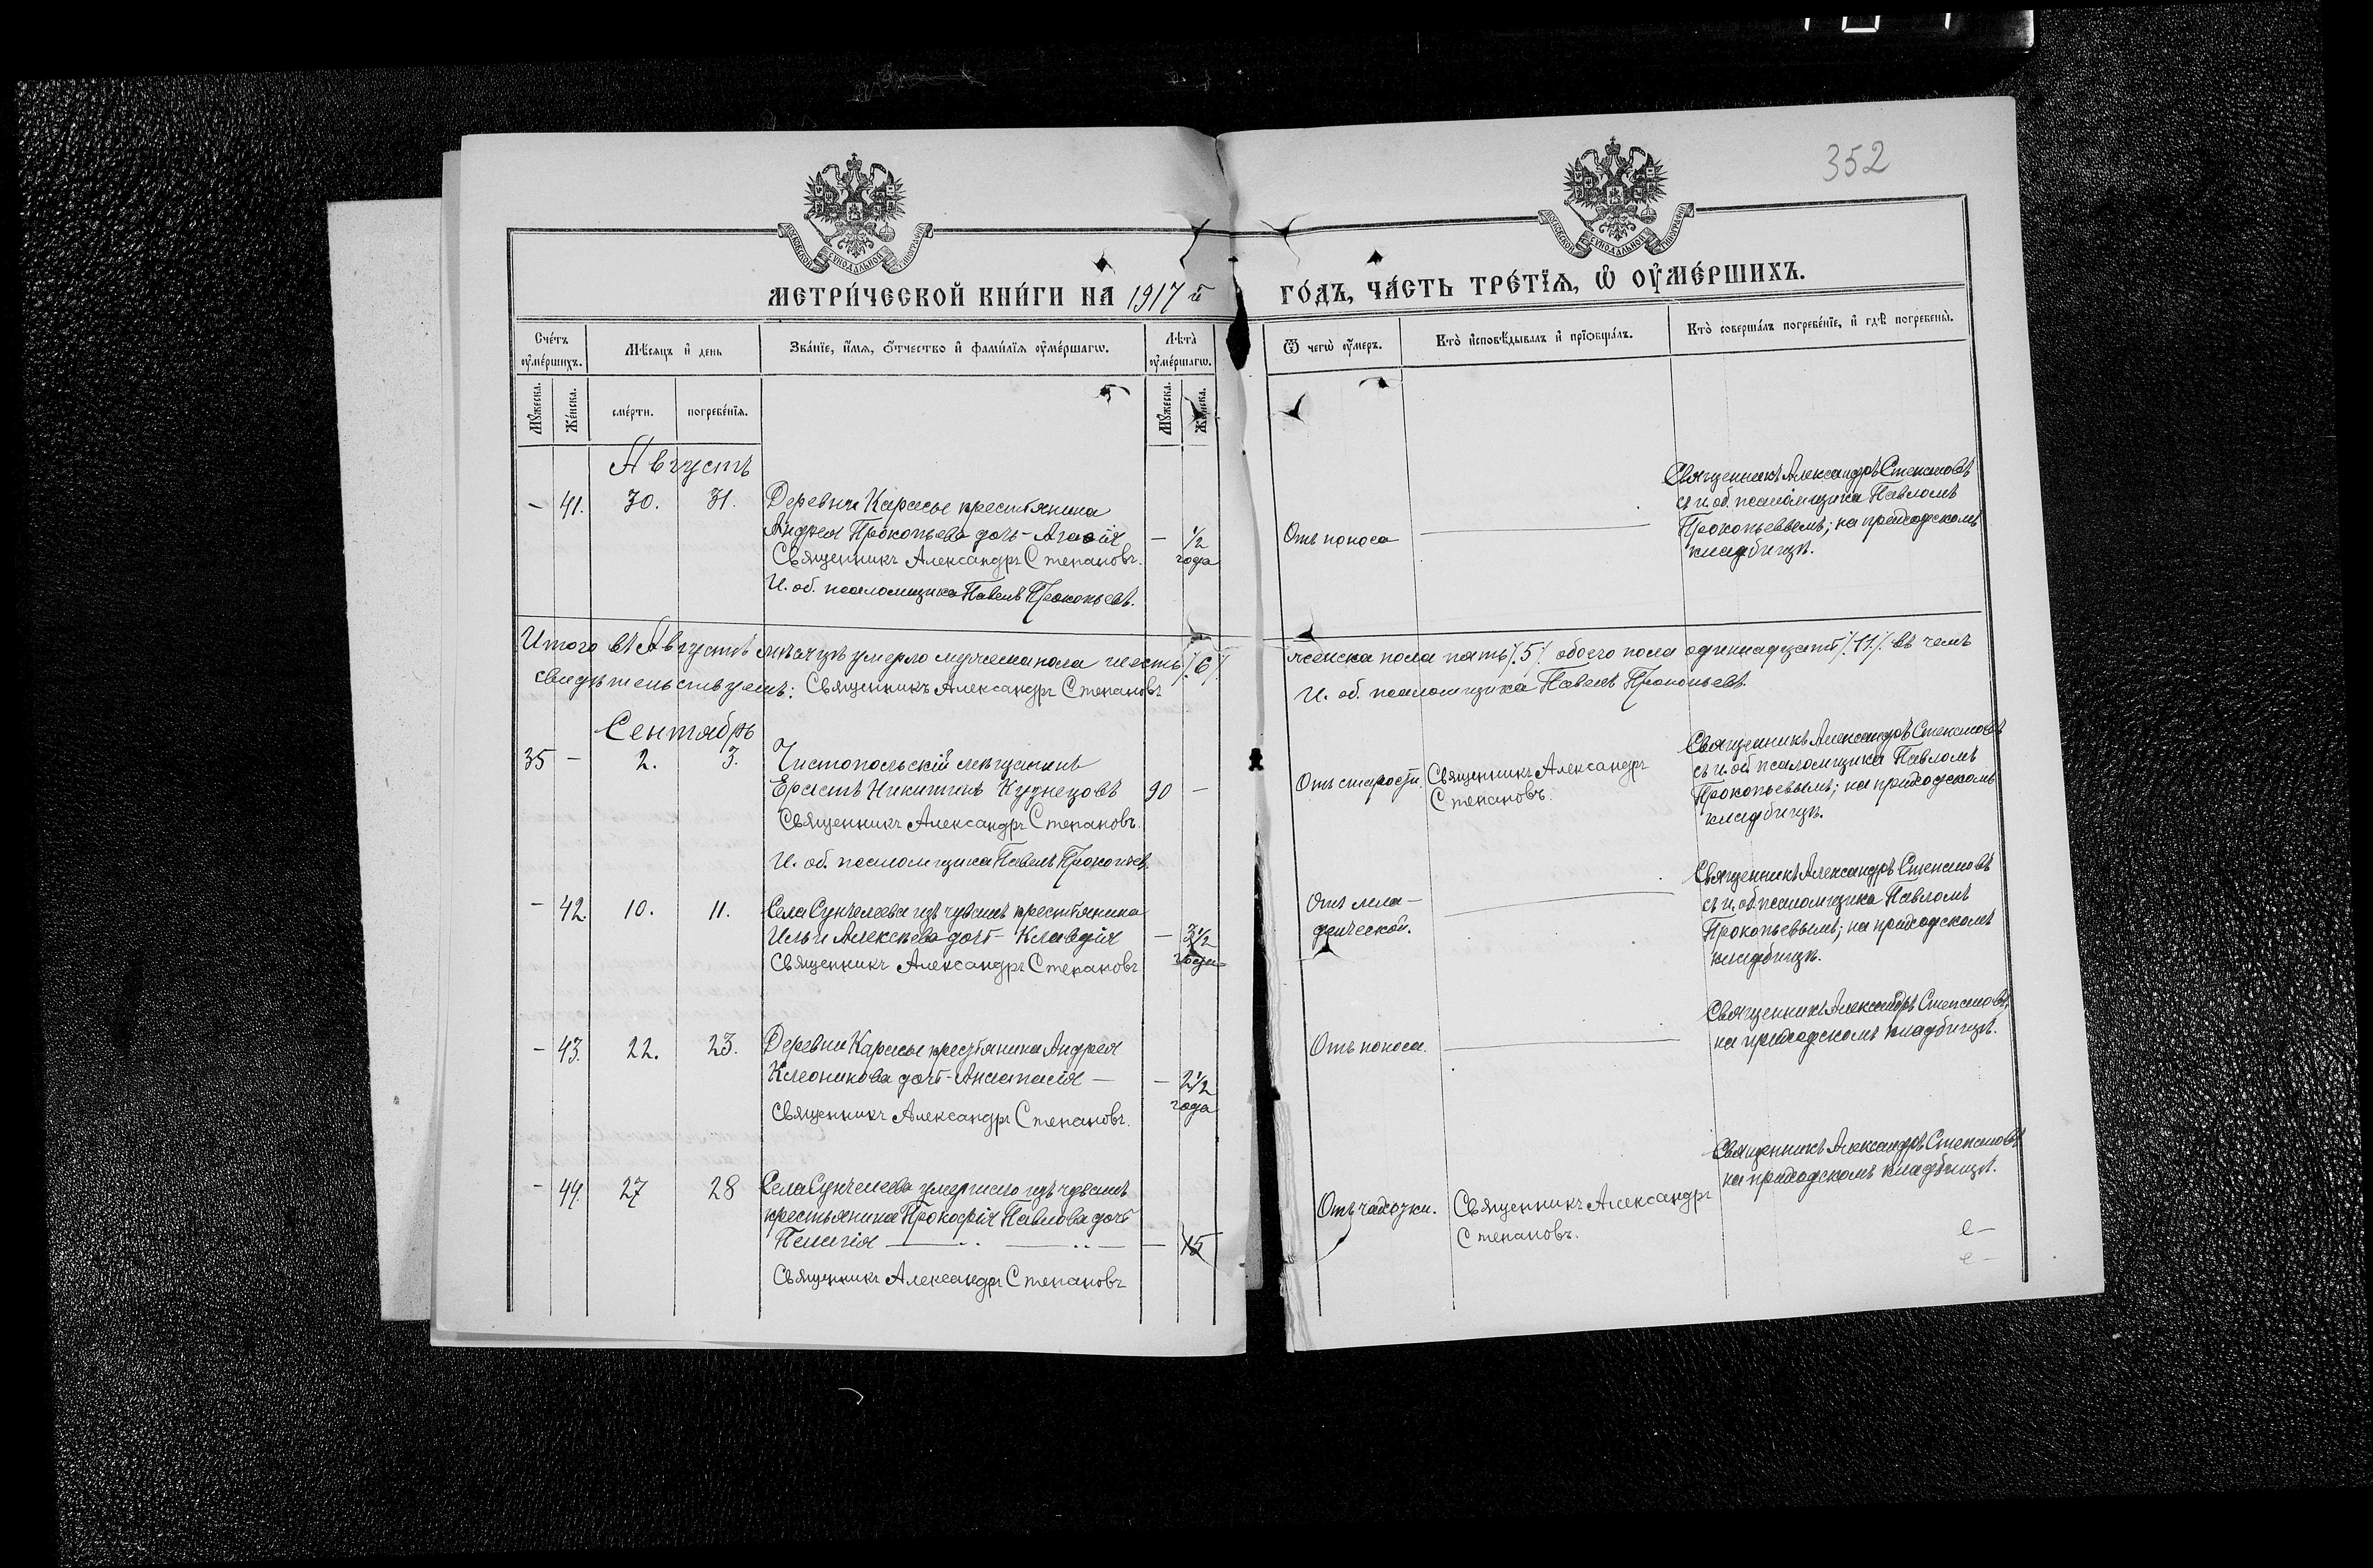 352
МЕТРИ́ЧЕСКОЙ КНИ́ГИ НА 1917 й ГО́ДЪ, ЧА́СТЬ ТРЕ́ТЇѦ, Ѡ҆ ОУ҆МЕ́РШИХЪ.
Сче́тъ оу҆ме́ршихъ.
Мѣ́сяцъ и҆ день
Зва́нїе, и҆́мѧ, ѻ҆́тчество и҆ фамилїѧ оу҆ме́ршагѡ.
Лѣ́та оу҆ме́ршагѡ.
Ѿ чегѡ̀ оу҆́меръ.
Кто̀ и҆сповѣ́дывалъ и҆ прїѡбща́лъ.
Кто̀ соверша́лъ погребе́нїе, и҆ гдѣ̀ погребены̀.
Мꙋ́жеска.
Же́нска.
сме́рти.
погребе́нїѧ.
Мꙋ́жеска.
Же́нска.
Августъ
– 41. 30. 31. Деревни Карасье крестьянина
Андрея Прокопьева дочь - Агаѳія — 1/2 года
Священникъ Александръ Степановъ.
И. об. псаломщика Павелъ Прокопьевъ.
Отъ поноса
Священникъ Александръ Степановъ
съ и. об. псаломщика Павломъ
Прокопьевымъ; на приходскомъ
кладбищѣ.
Итого въ Августѣ мѣсяцѣ умерло мужеска пола шесть /.6./ женска пола пять /.5./ обоего пола одиннадцать /.11./. въ чемъ
свидѣтельствуемъ: Священникъ Александръ Степановъ И. об. псаломщика Павелъ Прокопьевъ.
Сентябрь
35 – 2. 3. Чистопольскій мѣщанинъ
Ерастъ Никитинъ Кузнецовъ 90 –
Священникъ Александръ Степановъ.
И. об. псаломщика Павелъ Прокопьев.
Отъ старости.
Священникъ Александръ
Степановъ.
Священникъ Александръ Степановъ
съ и. об псаломщика Павломъ
Прокопьевымъ; на приходскомъ
кладбищѣ.
– 42. 10. 11. Села Сунчелеева изъ чувашъ крестьянина
Ильи Алексѣева дочь - Клавдія — 3 1/2 года
Священникъ Александръ Степановъ
Отъ мла-
денческой.
Священникъ Александръ Степановъ
съ и. об псаломщика Павломъ
Прокопьевымъ; на приходскомъ
кладбищѣ.
– 43. 22. 23. Деревни Карасье крестьянина Андрея
Клеоникова дочь - Анастасія — — 2 1/2 года
Священникъ Александръ Степановъ.
Отъ поноса.
Священникъ Александръ Степановъ,
на приходскомъ кладбищѣ.
– 44. 27 28 Села Сунчелеева умершаго изъ чувашъ
крестьянина Прокофія Павлова дочь
Пелагія — — 15
Священникъ Александръ Степановъ
Отъ чахотки.
Священникъ Александръ
Степановъ.
Священникъ Александръ Степановъ
на приходскомъ кладбищѣ.